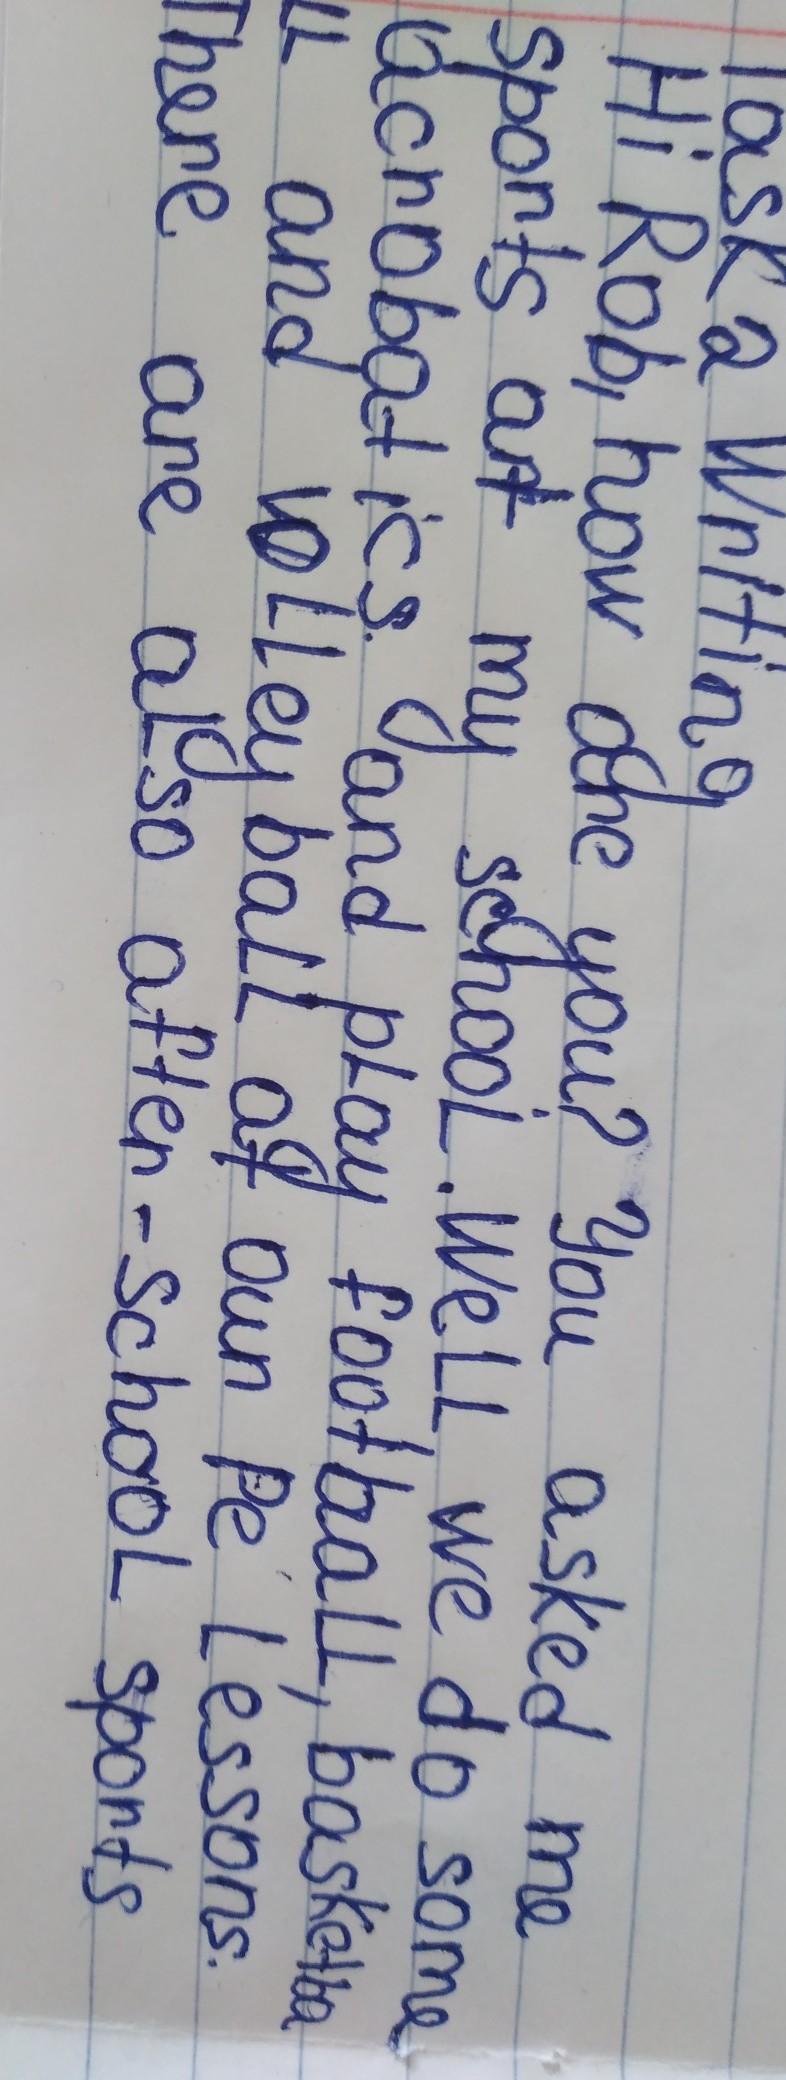 Task 2 Writing
Hi Rob, how are you? You asked me
sports at my school. Well we do some
acrobatics. and play football, basketba
ll and volleyball at our Pe lessons.
There are also after-school sports